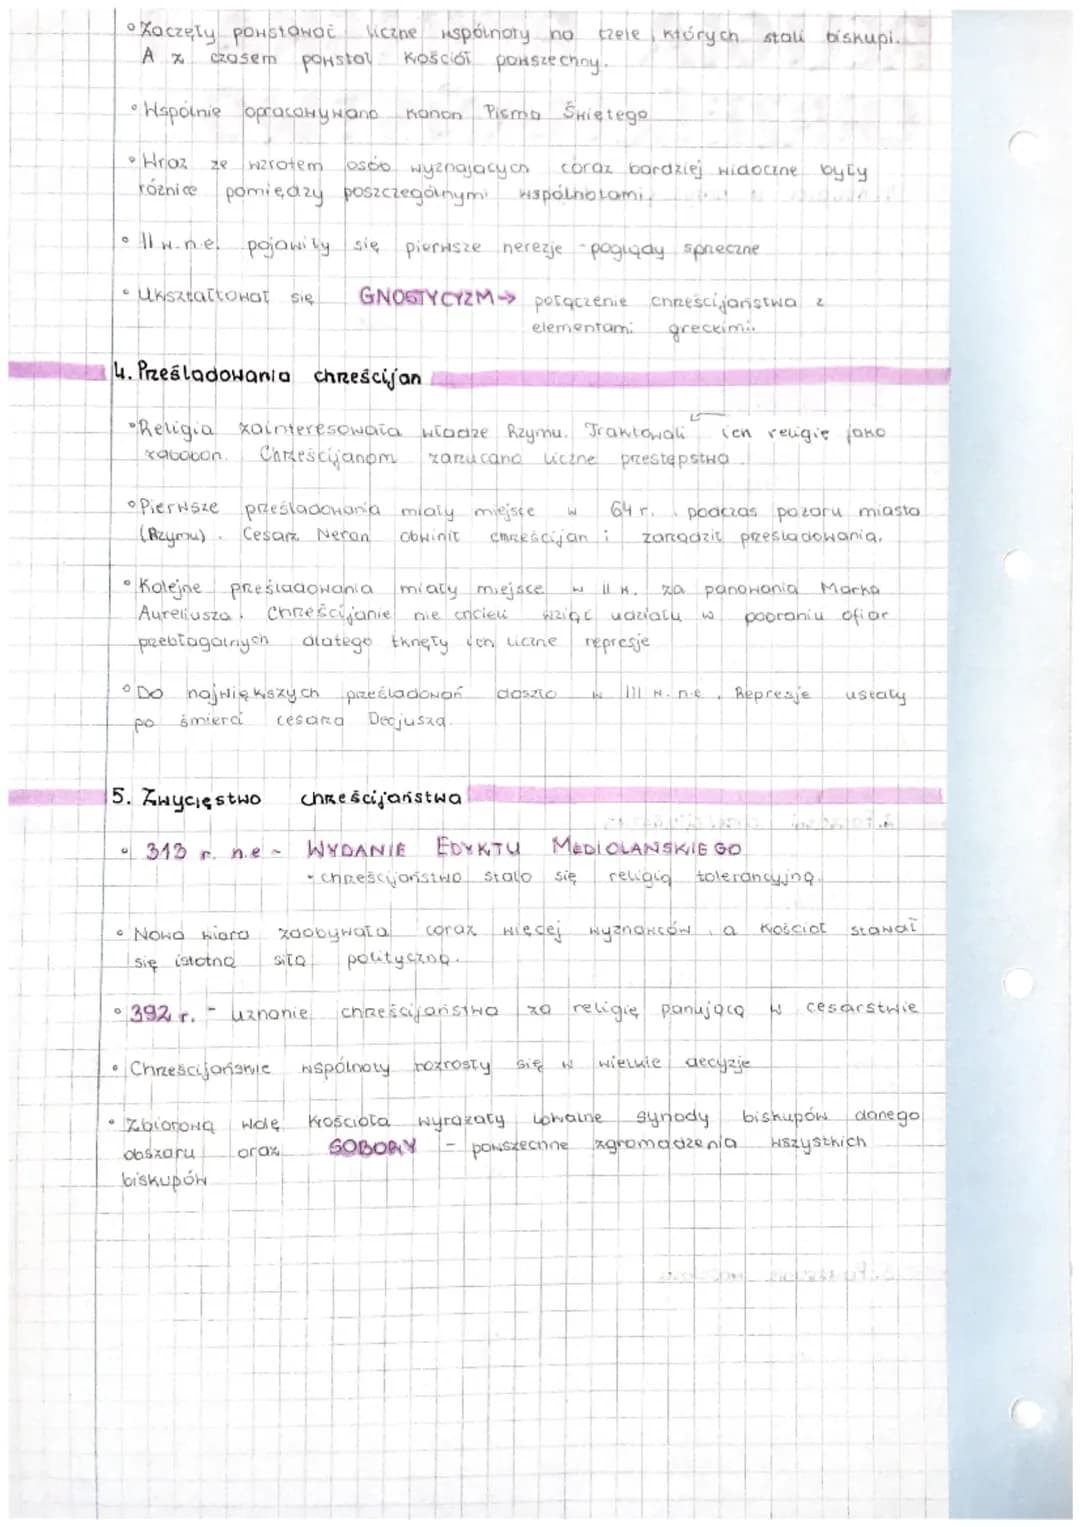 • Zaczęły powstawać liczne wspólnoty na czele, których stali biskupi.
A z czasem powstał Kościół powszechny.
• Wspólnie opracowywano kanon Pisma Świętego
• Wraz ze wzrotem osób wyznających coraz bardziej widoczne były
różnice pomiędzy poszczególnymi wspólnotami.
• II w.n.e. pojawiły się pierwsze herezje - poglądy sprzeczne
• Ukształtował się GNOSTYCYZM → połączenie chrześcijaństwa z
elementami greckimi.
4. Prześladowania chrześcijan
• Religia zainteresowała władze Rzymu. Traktowali ich religię jako
zabobon. Chrześcijanom zarzucano liczne przestępstwa.
• Pierwsze prześladowania miały miejsce w 64 r. podczas pożaru miasta
(Rzymu). Cesarz Neron obwinił chrześcijan i zarządził prześladowania.
• Kolejne prześladowania miały miejsce w II w. za panowania Marka
Aureliusza. Chrześcijanie nie chcieli wziąć udziału w pobraniu ofiar
przebłagalnych dlatego tknęły ich liczne represje
• Do największych prześladowań doszło w III w. n.e. Represje ustały
po śmierci cesarza Decjusza.
5. Zwycięstwo chrześcijaństwa
• 313 r. n.e - WYDANIE EDYKTU MEDIOLAŃSKIEGO
- chrześcijaństwo stało się religią tolerancyjną.
• Nowa wiara zdobywała coraz więcej wyznawców, a Kościół stawał
się istotną siłą polityczną.
• 392 r. - uznanie chrześcijaństwa za religię panującą w cesarstwie
• Chrześcijańskie wspólnoty rozrosły się w wielkie decyzje
• Zbiorową wolę Kościoła wyrażały lokalne synody biskupów danego
obszaru oraz SOBORY - powszechne zgromadzenia wszystkich
biskupów